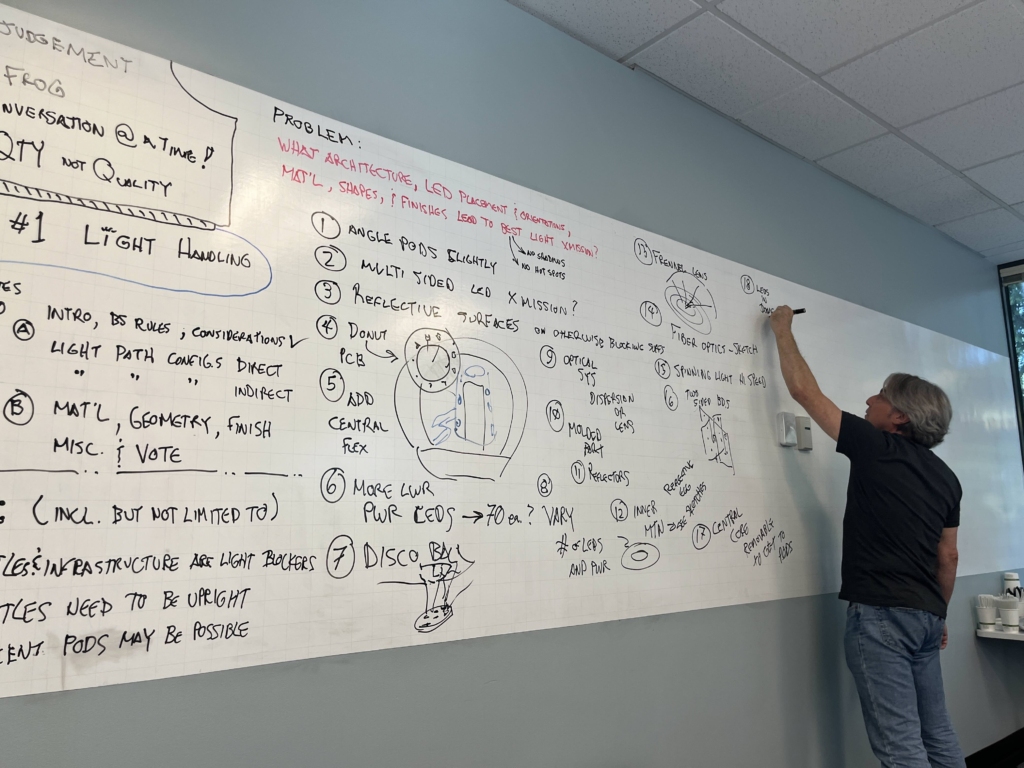 JUDGEMENT
FROG
NVERSATION @ A TIME!
QTY NOT QUALITY
#1 LIGHT HANDLING
A INTRO, BS RULES, CONSIDERATIONS
LIGHT PATH CONFIGS DIRECT
" " " INDIRECT
B MAT'L, GEOMETRY, FINISH
MISC. & VOTE
: (INCL. BUT NOT LIMITED TO)
TLES & INFRASTRUCTURE ARE LIGHT BLOCKERS
TLES NEED TO BE UPRIGHT
CENT PODS MAY BE POSSIBLE
PROBLEM:
WHAT ARCHITECTURE, LED PLACEMENT & ORIENTATIONS,
MAT'L, SHAPES, & FINISHES LEAD TO BEST LIGHT XMISSION?
NO SHADOWS
NO HOT SPOTS
1 ANGLE PODS SLIGHTLY
2 MULTI SIDED LED XMISSION?
3 REFLECTIVE SURFACES ON OTHERWISE BLOCKING
4 DONUT
PCB
5 ADD
CENTRAL
FLEX
6 MORE LWR
PWR LEDS → 70 ea?
7 DISCO BALL
8 VARY
# of LEDS
AND PWR
9 OPTICAL
SYS
DISPERSION
OR
LENS
10 MOLDED
PART
11 REFLECTORS
12 INNER
13 FRENNEL LENS
14 FIBER OPTICS - SKETCH
15 SPINNING LIGHT HI SPEED
6 TWO
SIDED
17 CENTRAL
CORE
REMOVABLE
TO GET TO
PODS
18 LEDS
IN